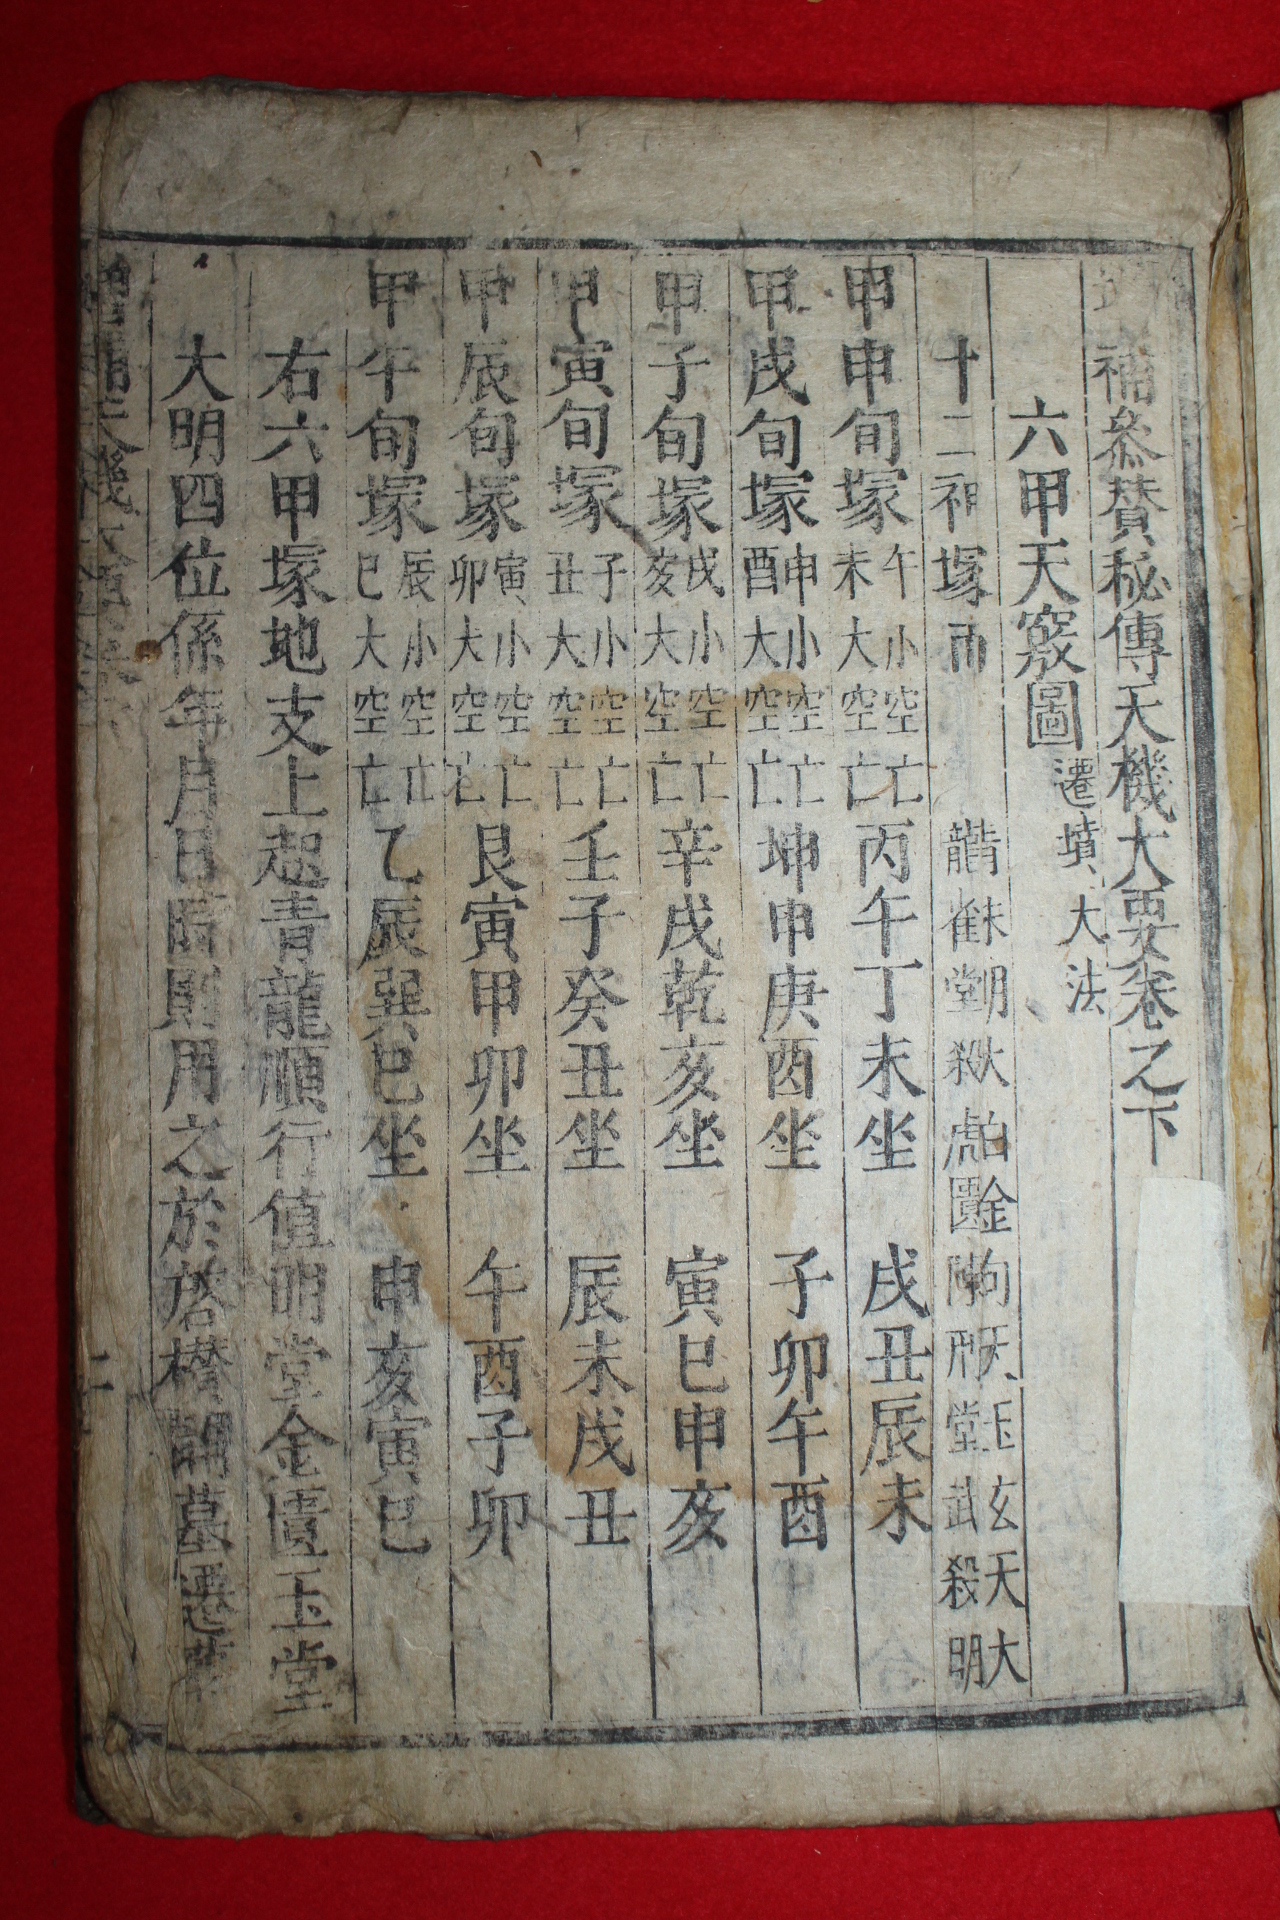 補叅賛秘傳天機大要卷之下
六甲天竅圖 遷墳大法
十二神塚而 青龍 朱雀 明堂 白虎 金匱 勾陳 天刑 玉堂 玄武 天殺 大明
甲申旬塚 午小空亡 未大空亡 丙午丁未坐 戌丑辰未
甲戌旬塚 申小空亡 酉大空亡 坤申庚酉坐 子卯午酉
甲子旬塚 戌小空亡 亥大空亡 辛戌乾亥坐 寅巳申亥
甲寅旬塚 子小空亡 丑大空亡 壬子癸丑坐 辰未戌丑
甲辰旬塚 寅小空亡 卯大空亡 艮寅甲卯坐 午酉子卯
甲午旬塚 辰小空亡 巳大空亡 乙辰巽巳坐 申亥寅巳
右六甲塚地支上起青龍順行值明堂金匱玉堂
大明四位係年月日時則用之於啓欑開墓遷葬
二